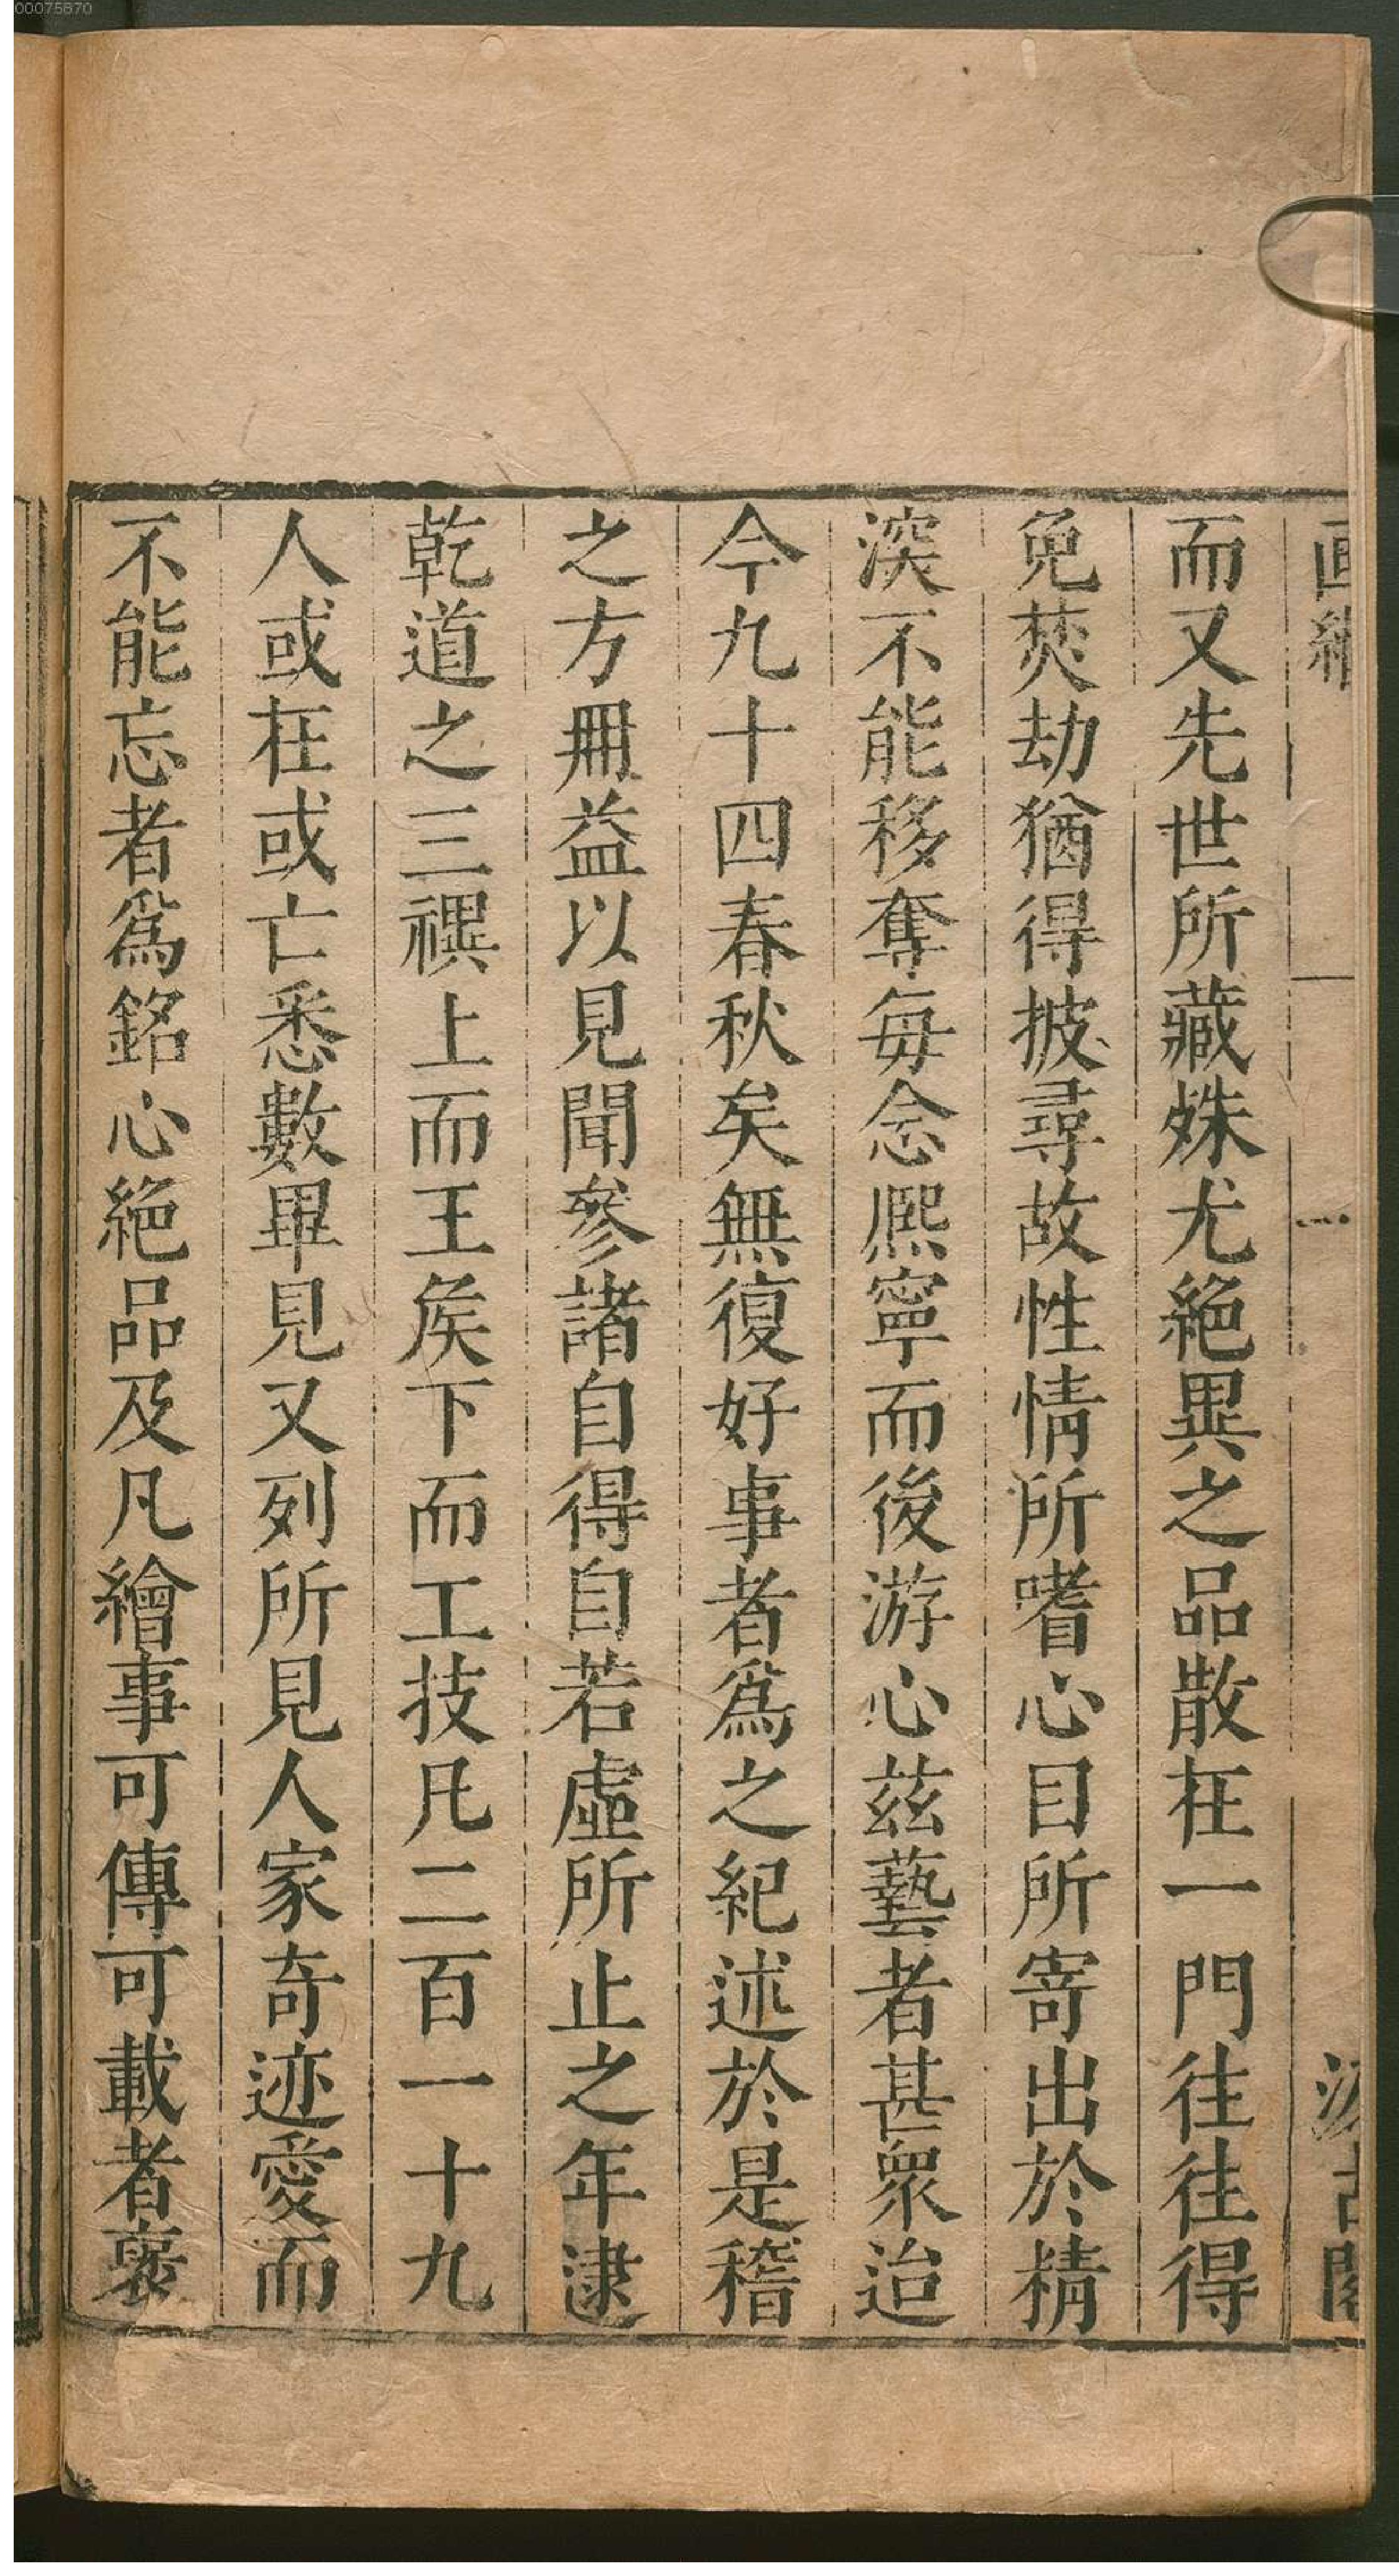 00075870
画繼
一
汲古閣
而又先世所藏姝尤絕異之品散在一門往往得
免焚劫猶得披尋故性情所嗜心目所寄出於精
深不能移奪每念熈寧而後游心茲藝者甚衆迨
今九十四春秋矣無復好事者爲之紀述於是稽
之方冊益以見聞參諸自得自若虛所止之年逮
乾道之三禩上而王矦下而工技凡二百一十九
人或在或亡悉數畢見又列所見人家奇迹愛而
不能忘者爲銘心絕品及凡繪事可傳可載者裒